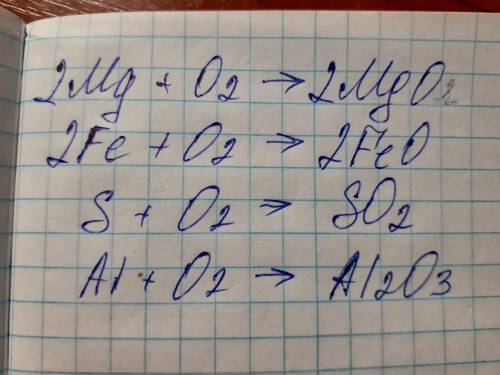 2Mg + O2 → 2MgO2
2Fe + O2 → 2FeO
S + O2 → SO2
Al + O2 → Al2O3